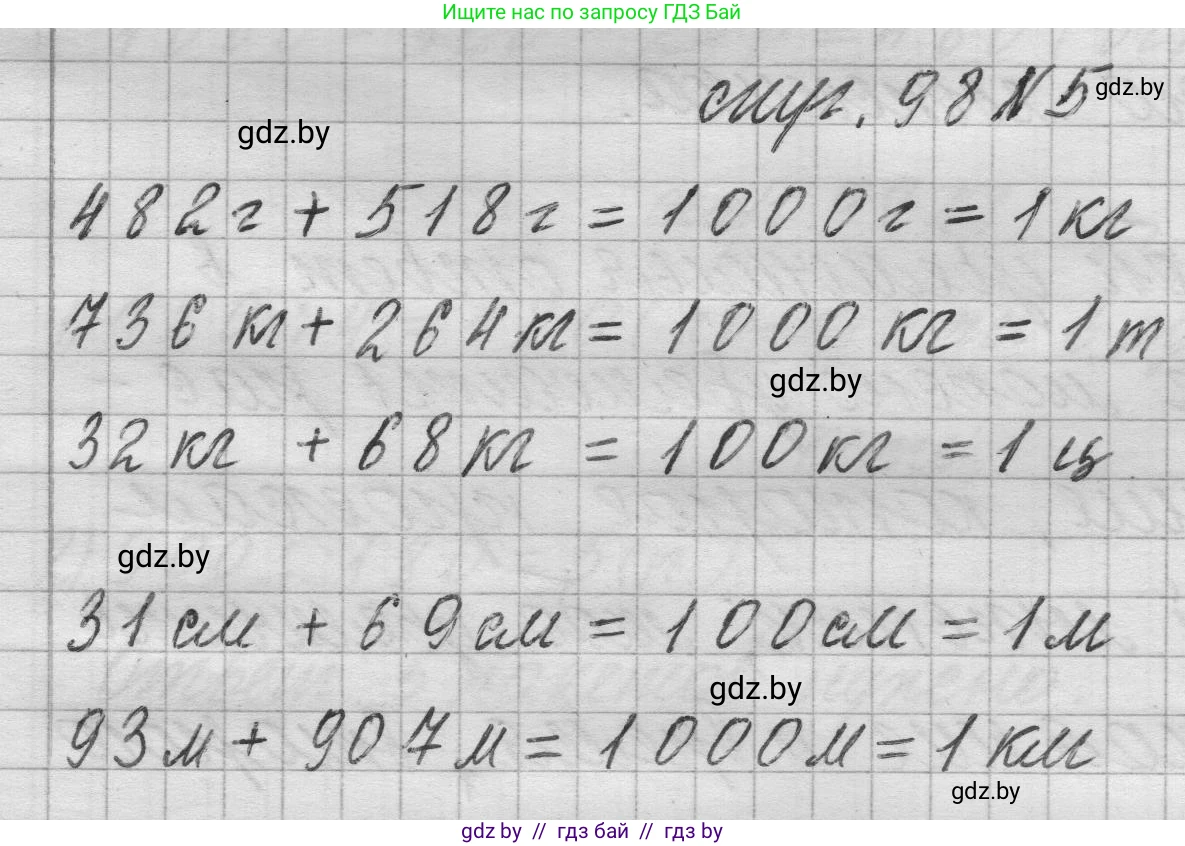 Ищите нас по запросу ГДЗ Бай
стр. 98 N 5
gdz.by
gdz.by
482г + 518г = 1000г = 1кг
736 кг + 264кг = 1000 кг = 1 т
gdz.by
32 кг + 68 кг = 100кг = 1 ц
gdz.by
31см + 69см = 100см = 1м
gdz.by
93м + 907м = 1000м = 1 км
gdz.by
gdz by // гдз бай // гдз by